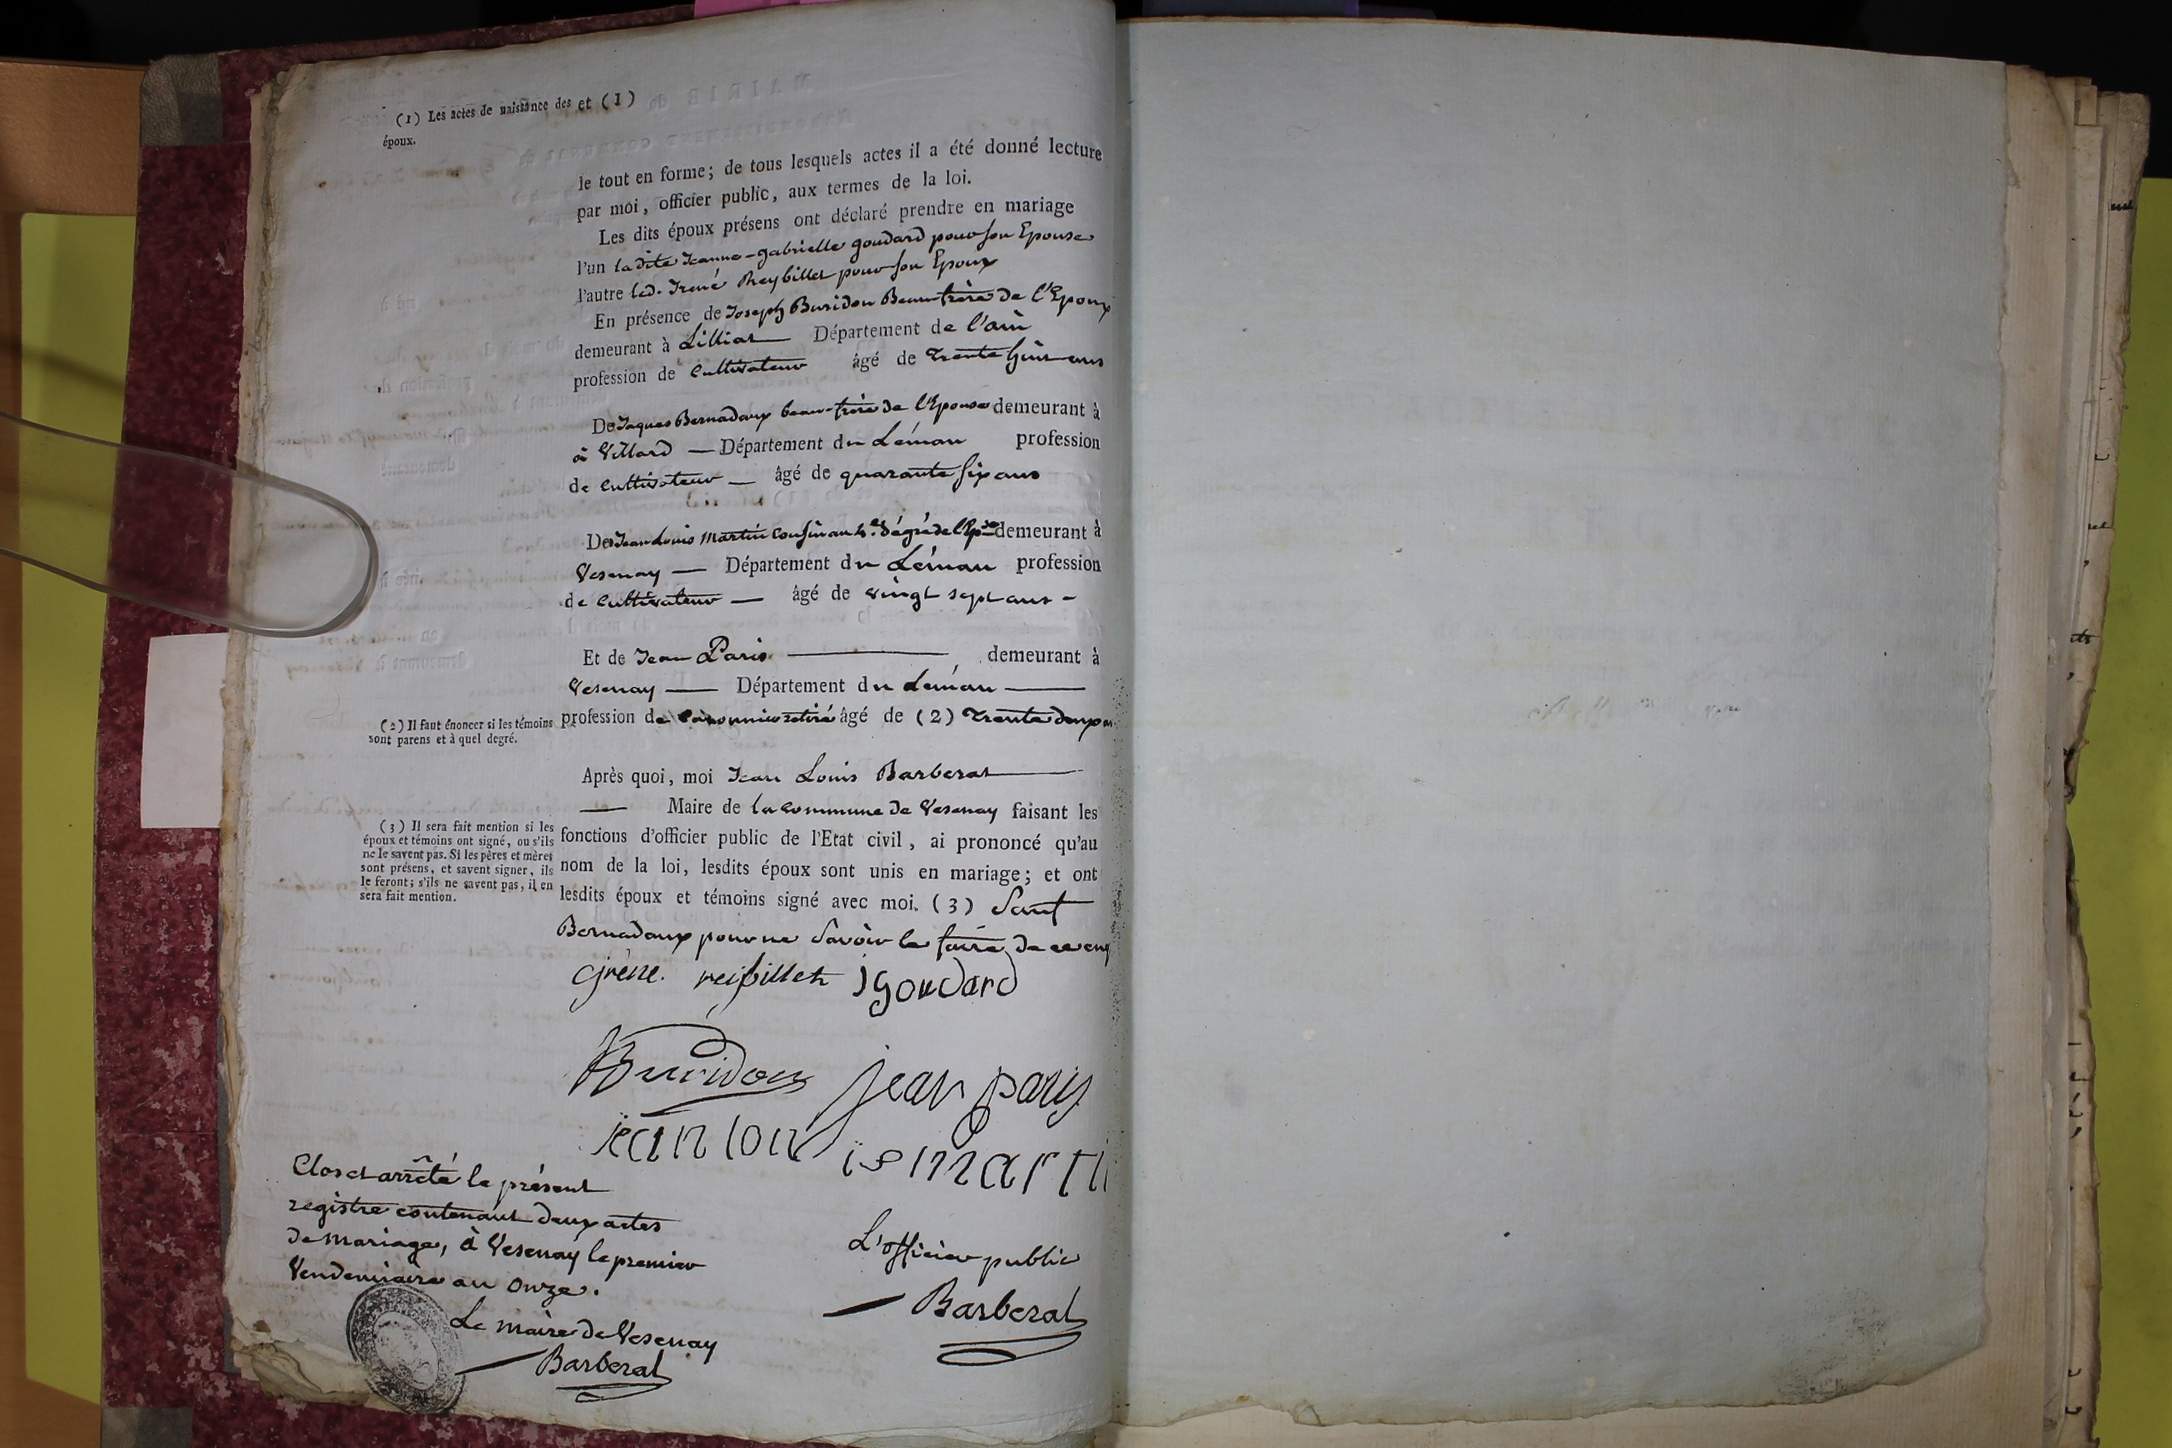 (1) Les actes de naissance des et (1)
époux.
le tout en forme; de tous lesquels actes il a été donné lecture
par moi, officier public, aux termes de la loi.
Les dits époux présens ont déclaré prendre en mariage
l'un ladite Jeanne-gabrielle goudard pour son Epouse
l'autre led. Irené Reybillet pour son Epoux
En présence de Joseph Buridon Beau-frère de l'Epoux
demeurant à Lilliat Département de l'ain
profession de Cultivateur âgé de trente huit ans
De Jaques Bernadaux beau-frère de l'Epouse demeurant à
à Villard — Département du Léman profession
de Cultivateur — âgé de quarante six ans
De Jean Louis Martin Cousin au 4e. dégré de l'Epse demeurant à
Vesenay — Département du Léman profession
de Cultivateur — âgé de vingt sept ans -
Et de Jean Paris — demeurant à
Vesenay — Département du Léman —
(2) Il faut énoncer si les témoins
sont parens et à quel degré.
profession de Canonnier retiré âgé de (2) trente deux
Après quoi, moi Jean Louis Barberat —
— Maire de la Commune de Vesenay faisant les
(3) Il sera fait mention si les
époux et témoins ont signé, ou s'ils
ne le savent pas. Si les pères et mères
sont présens, et savent signer, ils
le feront; s'ils ne savent pas, il en
sera fait mention.
fonctions d'officier public de l'Etat civil, ai prononcé qu'au
nom de la loi, lesdits époux sont unis en mariage; et ont
lesdits époux et témoins signé avec moi. (3) Sauf
Bernadaux pour ne Savoir le faire de ce enq
irène. reybillet J goudard
JBuridon jean paris
jean louis marti
Clos et arrêté le présent
registre contenant deux actes
de mariage, à Vesenay le premier
Vendemiaire an onze.
L'officier public
Barberat
Le maire de Vesenay
Barberat